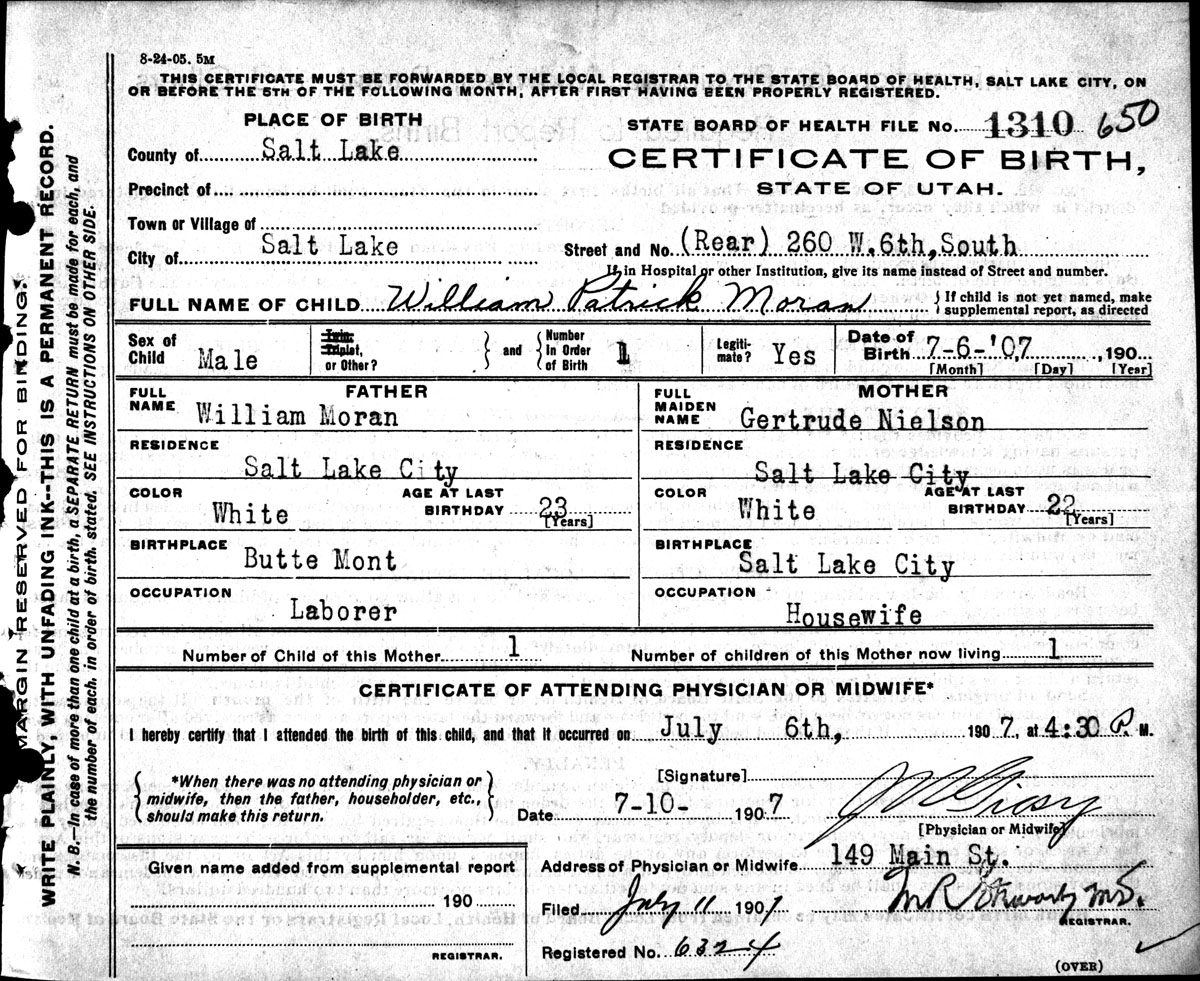 8-24-05. 5M
THIS CERTIFICATE MUST BE FORWARDED BY THE LOCAL REGISTRAR TO THE STATE BOARD OF HEALTH, SALT LAKE CITY, ON
OR BEFORE THE 5TH OF THE FOLLOWING MONTH, AFTER FIRST HAVING BEEN PROPERLY REGISTERED.
MARGIN RESERVED FOR BINDING.
WRITE PLAINLY, WITH UNFADING INK--THIS IS A PERMANENT RECORD.
N. B.--In case of more than one child at a birth, a SEPARATE RETURN must be made for each, and
the number of each, in order of birth, stated. SEE INSTRUCTIONS ON OTHER SIDE.
PLACE OF BIRTH
County of Salt Lake
Precinct of
Town or Village of
City of Salt Lake
STATE BOARD OF HEALTH FILE No. 1310 650
CERTIFICATE OF BIRTH,
STATE OF UTAH.
Street and No. (Rear) 260 W.6th,South
If in Hospital or other Institution, give its name instead of Street and number.
FULL NAME OF CHILD William Patrick Moran } If child is not yet named, make
supplemental report, as directed
Sex of Child Male
Twin, Triplet, or Other? } and { Number In Order of Birth 1
Legiti-mate? Yes
Date of Birth 7-6-'07 , 190
[Month] [Day] [Year]
FATHER
FULL NAME William Moran
RESIDENCE
Salt Lake City
COLOR White AGE AT LAST BIRTHDAY 23 [Years]
BIRTHPLACE Butte Mont
OCCUPATION
Laborer
MOTHER
FULL MAIDEN NAME Gertrude Nielson
RESIDENCE
Salt Lake City
COLOR White AGE AT LAST BIRTHDAY 22 [Years]
BIRTHPLACE Salt Lake City
OCCUPATION
Housewife
Number of Child of this Mother 1 Number of children of this Mother now living 1
CERTIFICATE OF ATTENDING PHYSICIAN OR MIDWIFE*
I hereby certify that I attended the birth of this child, and that it occurred on July 6th, 1907, at 4:30 P. M.
{ *When there was no attending physician or
midwife, then the father, householder, etc.,
should make this return. }
[Signature]
Date 7-10- 1907
[Physician or Midwife]
Given name added from supplemental report
190
REGISTRAR.
Address of Physician or Midwife 149 Main St.
Filed July 11 1907
REGISTRAR.
Registered No. 6324
(OVER)